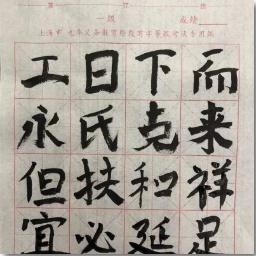 一级 成绩
上海市 九年义务教育阶段写字等级考试专用纸
工日下而
永氏克来
但扶和祥
宜必延足